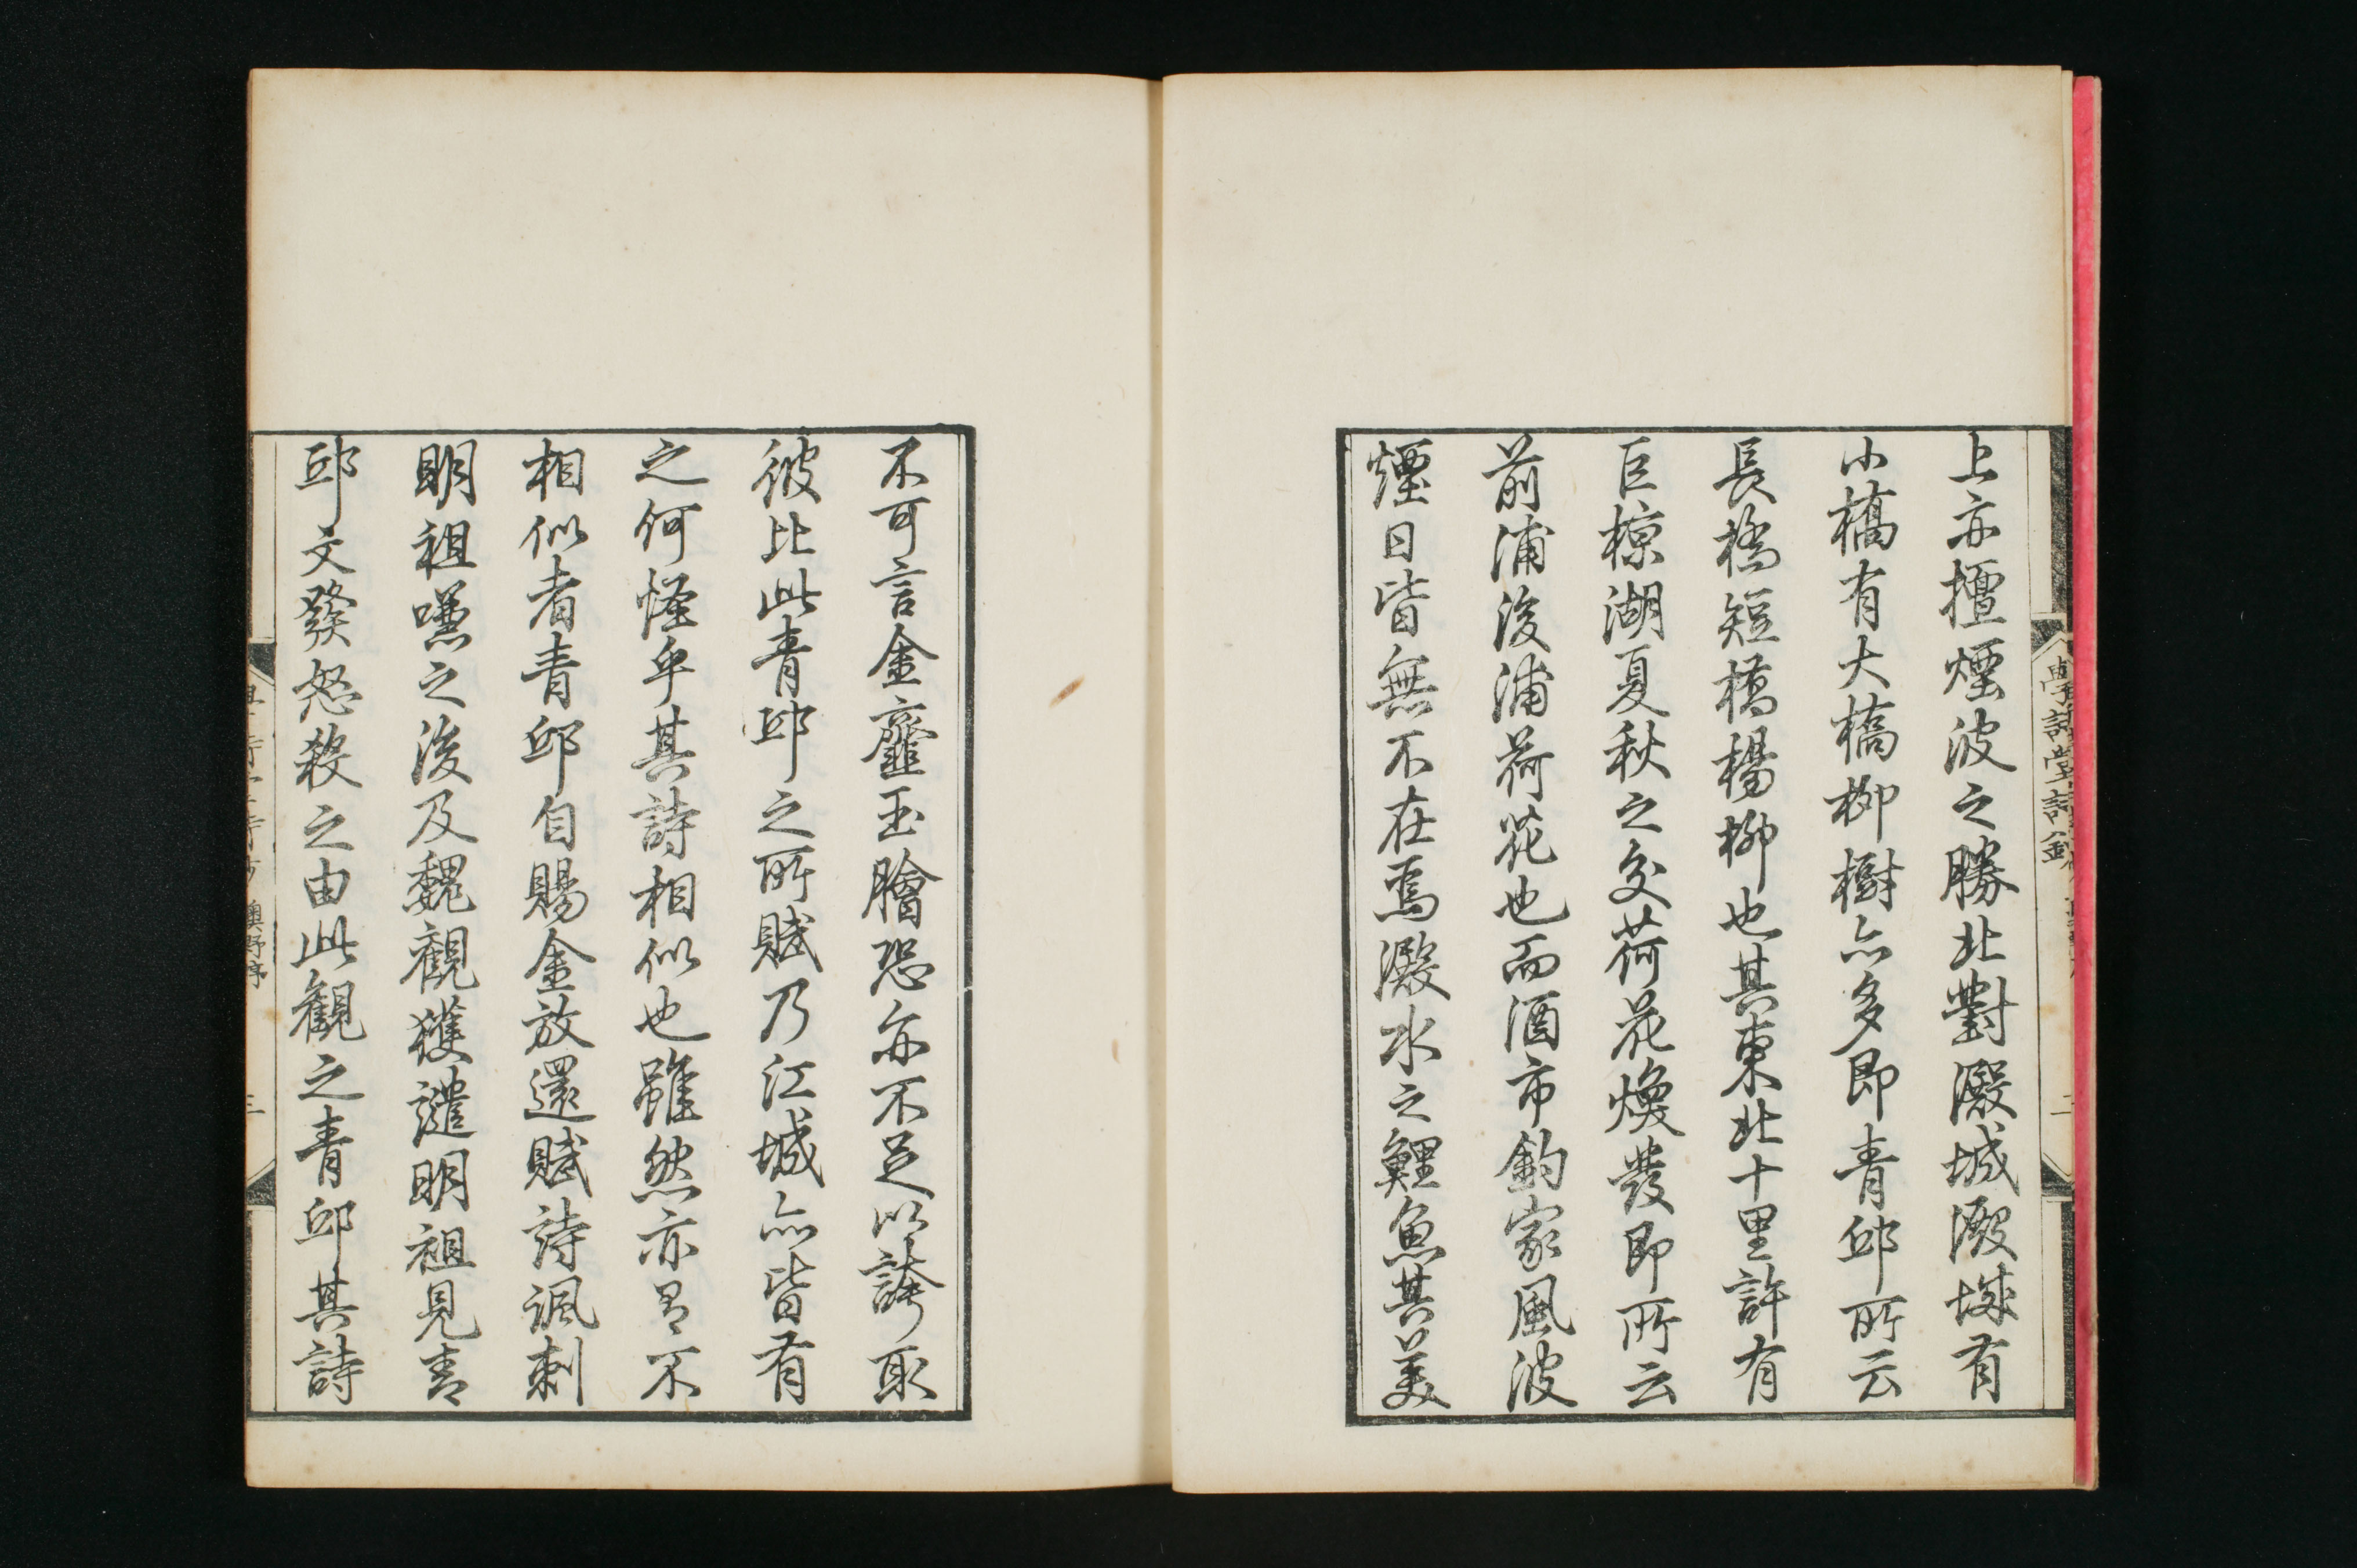 上亦擅煙波之勝北對澱城澱城有
小橋有大橋柳樹亦多即青邱所云
長橋短橋楊柳也其東北十里許有
巨椋湖夏秋之交荷花煥發即所云
前浦後浦荷花也而酒市釣家風波
煙日皆無不在焉澱水之鯉魚其美
學詩堂詩鈔
二
不可言金虀玉膾恐亦不足以誇耶
彼比此青邱之所賦乃江城亦皆有
之何怪乎其詩相似也雖然亦有不
相似者青邱自賜金放還賦詩諷刺
明祖嗛之後及魏觀獲譴明祖見青
邱文發怒殺之由此觀之青邱其詩
三